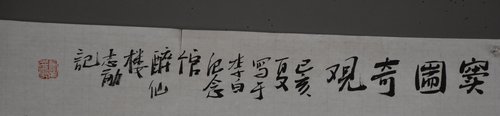 窦圌奇观
己亥
夏
写于
李白
纪念
馆
醉仙
楼
志勋
记